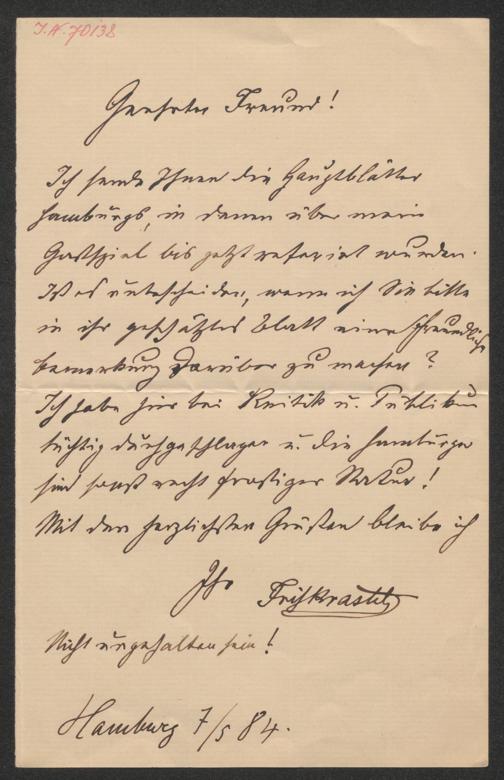 J.N. 70138
Geehrter Freund!
Ich sende Ihnen die Hauptblätter
Hamburgs, in denen über mein
Gastspiel bis jetzt referiert wurden.
Ist es unbescheiden, wenn ich Sie bitte
in ihr geschätztes Blatt eine freundliche
Bemerkung darüber zu machen?
Ich habe hier bei Kritik u. Publikum
tüchtig durchgeschlagen u. die Hamburger
sind sonst recht frostiger Natur!
Mit den herzlichsten Grüßen bleibe ich
Ihr Fritz Krastel
Nicht ungehalten sein!
Hamburg 7/5 84.